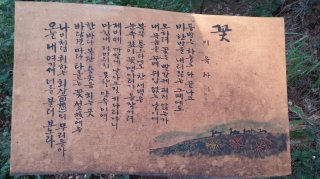 꽃
이육사
동방은 하늘도 다 끝나고
비 한방울 내리잖는 그때에도
오히려 꽃은 빨갛게 피지 않는가
내 목숨을 꾸며 쉬임 없는 날이여
북쪽 툰드라에도 찬 새벽은
눈속 깊이 꽃 맹아리가 옴작거려
제비떼 까맣게 날아오길 기다리나니
마침내 저버리지 못할 약속이여
한바다 복판 용솟음치는 곳
바람결 따라 타오르는 꽃 성에는
나비처럼 취하는 회상의 무리들아
오늘 내 여기서 너를 불러 보노라